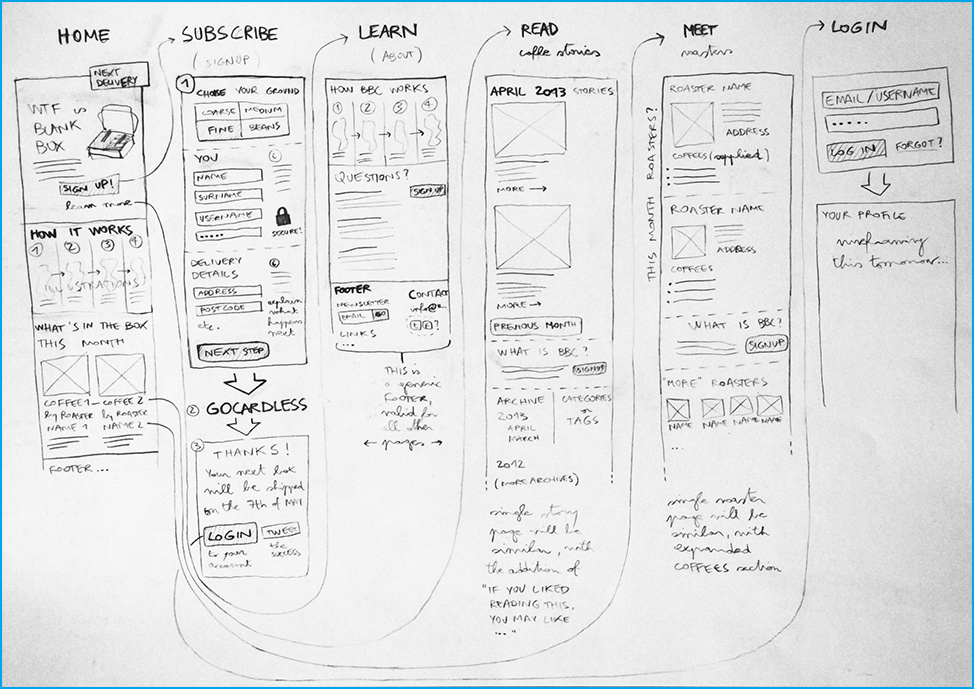 HOME
NEXT
DELIVERY
WTF is
BLANK
BOX
SIGN UP!
learn more
HOW IT WORKS
1 2 3 4
ILLUSTRATIONS
WHAT'S IN THE BOX
THIS MONTH
COFFEE 1 COFFEE 2
by ROASTER by ROASTER
NAME 1 NAME 2
FOOTER ...
SUBSCRIBE
(SIGNUP)
1
CHOOSE YOUR GROUND
COARSE MEDIUM
FINE BEANS
YOU
NAME
SURNAME
USERNAME
SECURE!
DELIVERY
DETAILS
ADDRESS
POSTCODE
etc.
explain
what
happens
next
NEXT STEP
2 GOCARDLESS
3
THANKS!
Your next box
will be shipped
on the 7th of MAY
LOGIN TWEET
to your
account
the
SUCCESS
LEARN
(ABOUT)
HOW BBC WORKS
1 2 3 4
QUESTIONS?
SIGNUP
FOOTER
NEWSLETTER
EMAIL GO
LINKS
...
CONTACT
info@...
t f ?
THIS is
a generic
FOOTER,
valid for
all other
pages
READ
coffee stories
APRIL 2013 STORIES
MORE
MORE
PREVIOUS MONTH
WHAT IS BBC?
SIGNUP
ARCHIVE
2013
APRIL
MARCH
2012
(MORE ARCHIVES)
CATEGORIES
or
TAGS
single story
page will be
similar, with
the addition of
"IF YOU LIKED
READING THIS,
YOU MAY LIKE
..."
MEET
roasters
THIS MONTH ROASTERS?
ROASTER NAME
ADDRESS
COFFEES (supplied)
ROASTER NAME
ADDRESS
COFFEES
WHAT IS BBC?
SIGNUP
"MORE" ROASTERS
NAME NAME NAME NAME
...
single roaster
page will be
similar, with
expanded
COFFEES section
LOGIN
EMAIL/USERNAME
LOG IN FORGOT?
YOUR PROFILE
wireframing
this tomorrow...